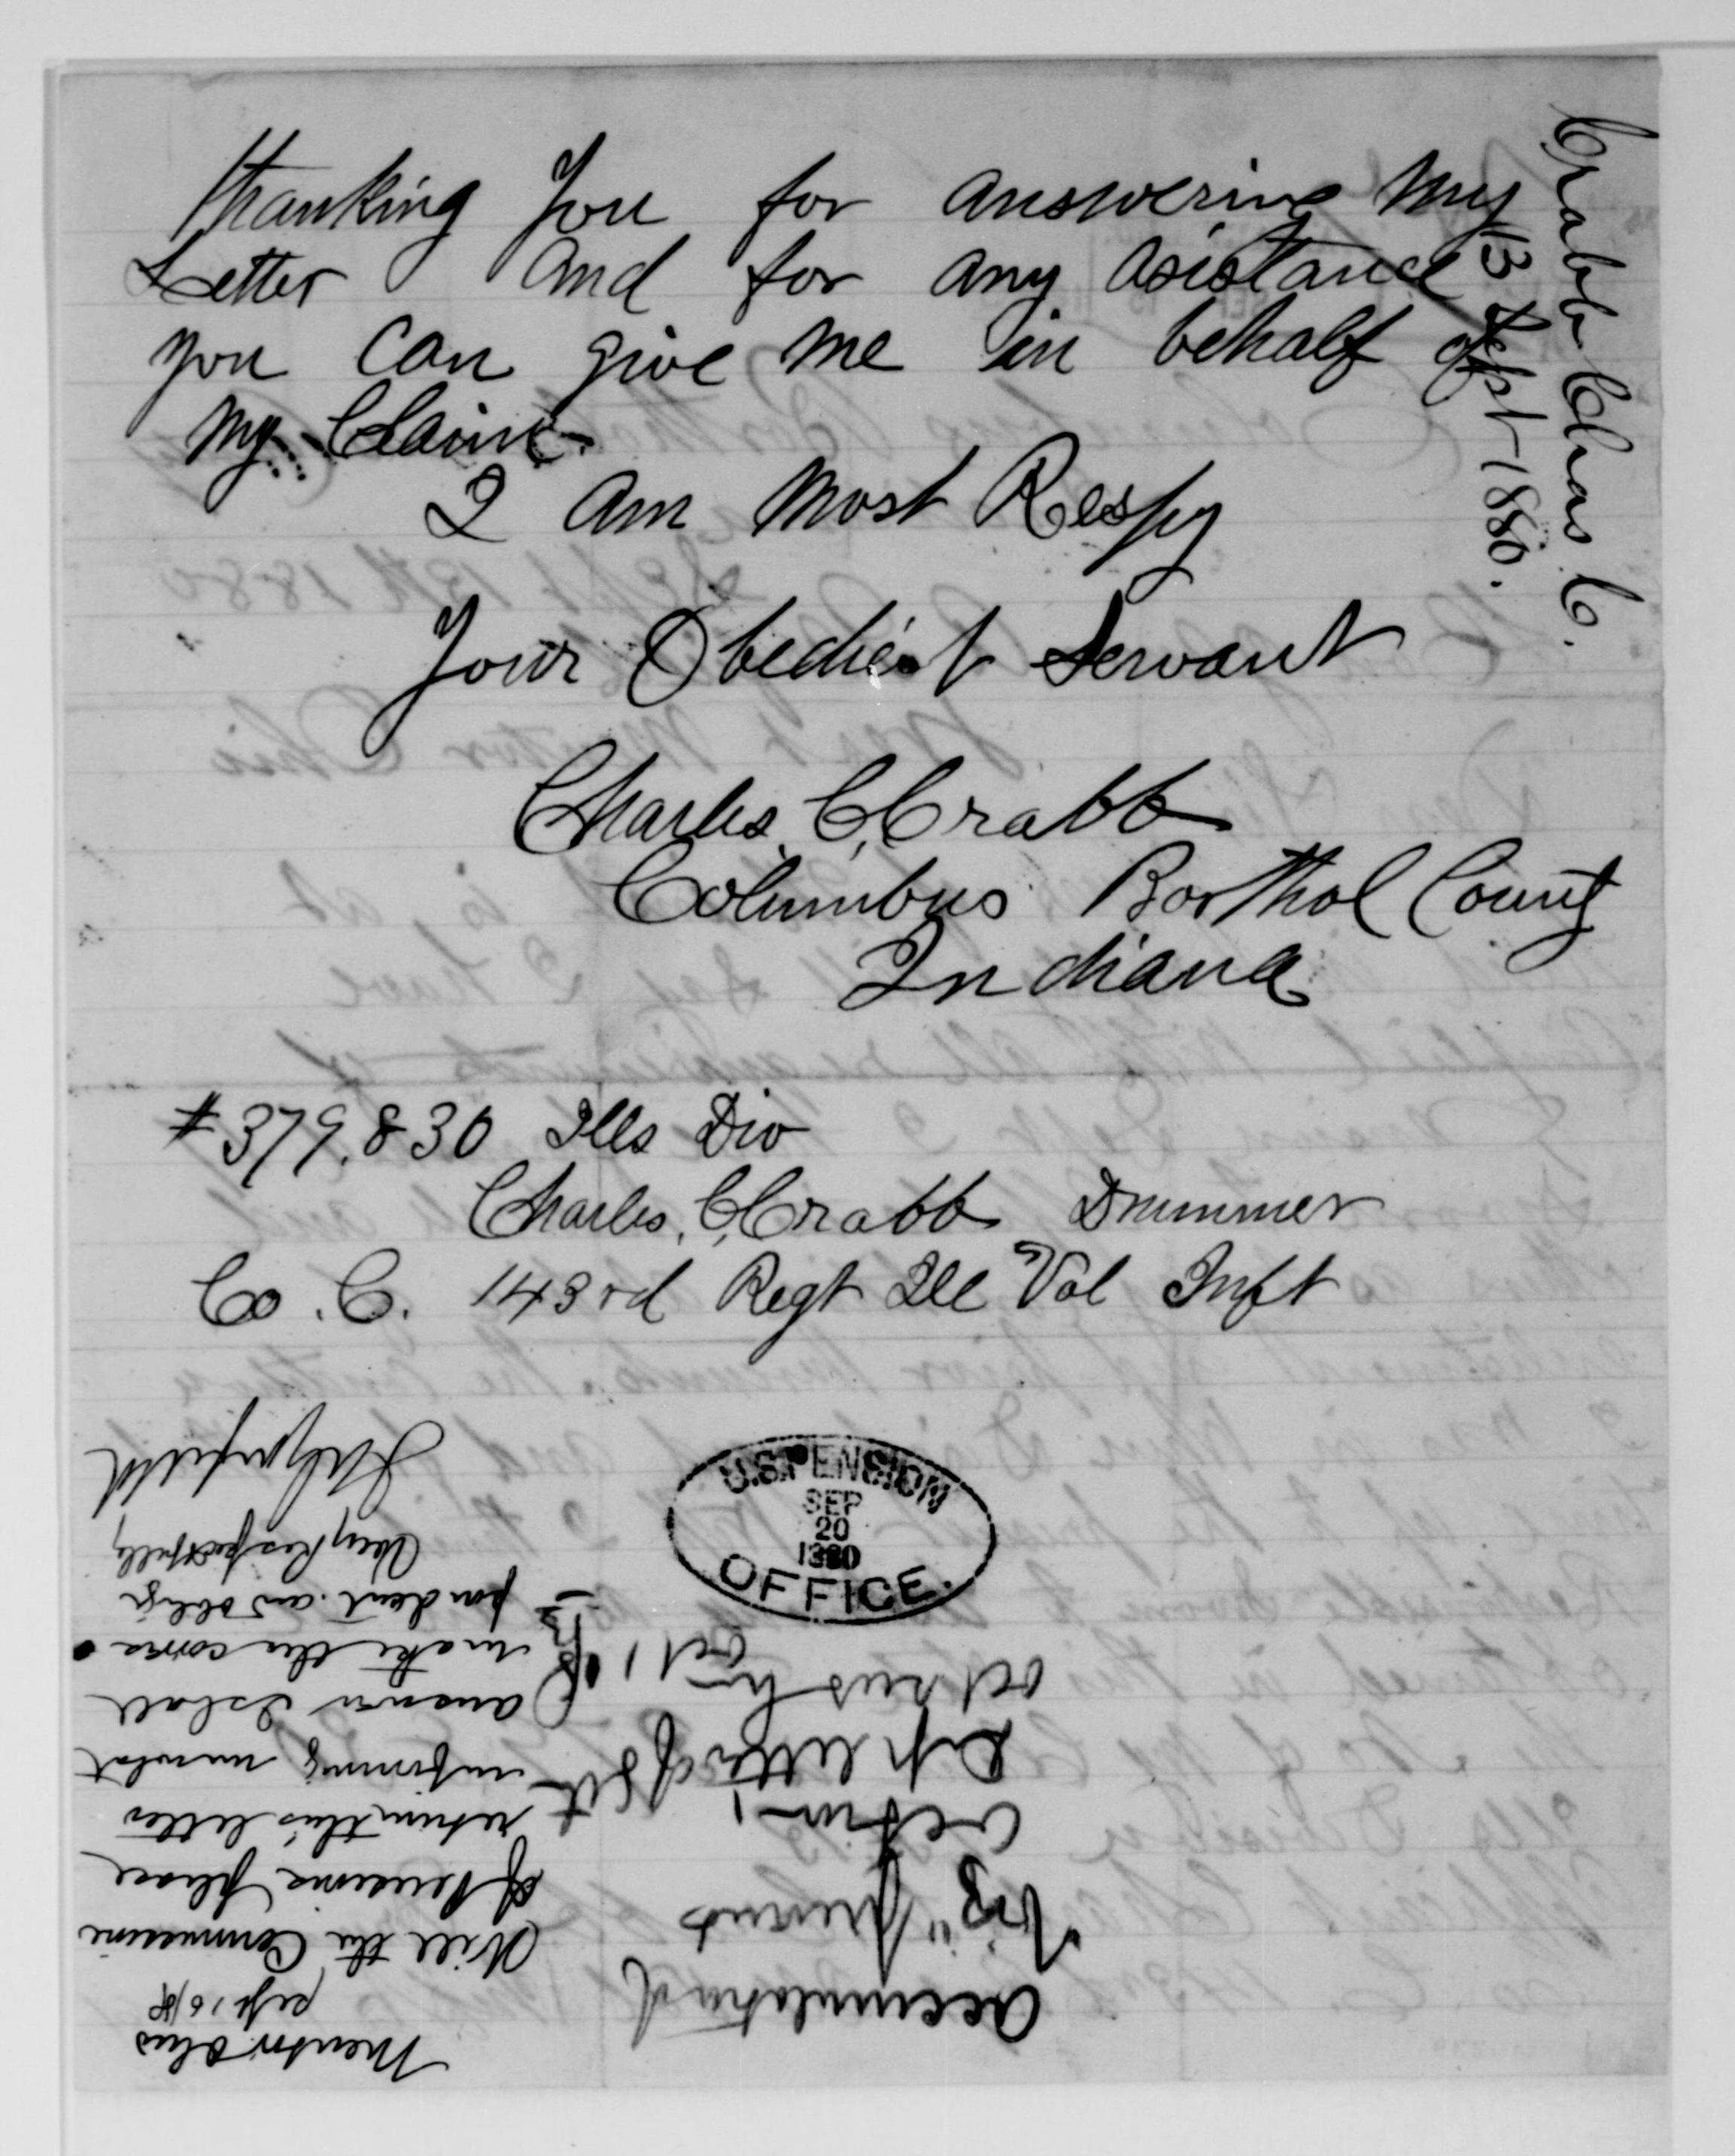 Thanking You for answering My
Letter and for any asistance
you can give me in behalf of
my Claim
I am Most Respy
Your Obedient Servant
Charles, C, Crabb
Columbus Barthol County
Indiana
#379.830 Ills Div
Charles, C, Crabb Drummer
Co. C. 143rd Regt Ill Vol Inft
Crabb Chas C.
13 Sept 1880.
U.S. PENSION
SEP
20
1880
OFFICE.
Mentor Ohio
Sept 16/80
Will the Commissioner
of Pensions please
return this letter
informing me what
answer I shall
make the corres
pondent and oblige
Very Respectfully
JAGarfield